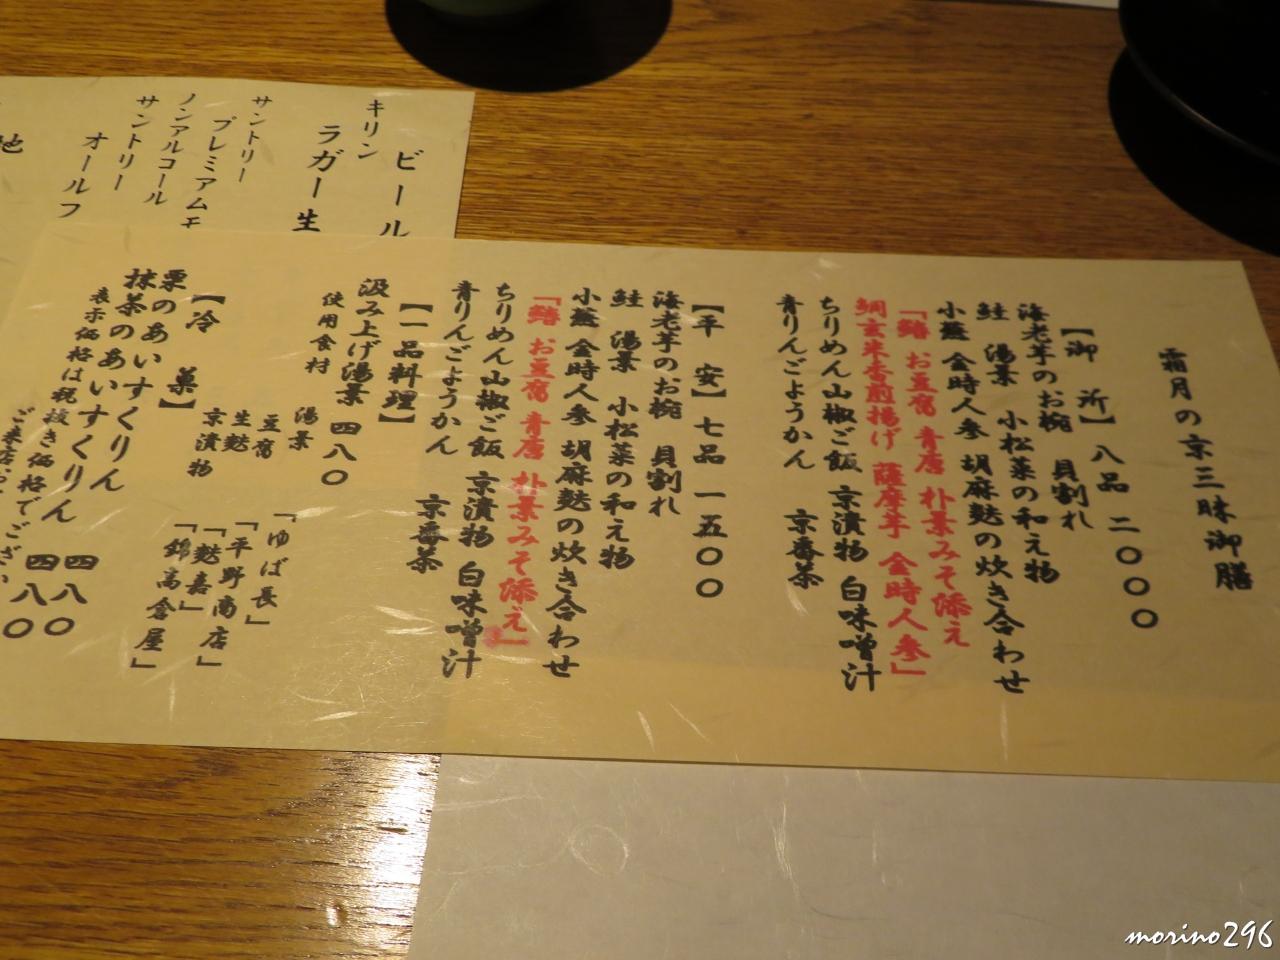 霜月の京三昧御膳
【御 所】 八品 二〇〇〇
海老芋のお椀 貝割れ
鮭 湯葉 小松菜の和え物
小蕪 金時人参 胡麻麩の炊き合わせ
「鰆 お豆腐 青唐 朴葉みそ添え
鯛玄米香煎揚げ 薩摩芋 金時人参」
ちりめん山椒ご飯 京漬物 白味噌汁
青りんごようかん 京番茶
【平 安】 七品 一五〇〇
海老芋のお椀 貝割れ
鮭 湯葉 小松菜の和え物
小蕪 金時人参 胡麻麩の炊き合わせ
「鰆 お豆腐 青唐 朴葉みそ添え」
ちりめん山椒ご飯 京漬物 白味噌汁
青りんごようかん 京番茶
【一品料理】
汲み上げ湯葉 四八〇
使用食材
湯葉 「ゆば長」
豆腐 「平野商店」
生麩 「麩嘉」
京漬物 「錦高倉屋」
【冷 菓】
栗のあいすくりん 四八〇
抹茶のあいすくりん 四八〇
表示価格は税抜き価格でござい
ご来店お
ビール
キリン
ラガー生
サントリー
プレミアムモ
ノンアルコール
サントリー
オールフ
地
morino296